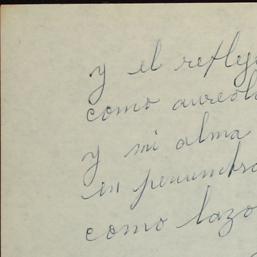 y el reflej
como aureol
y mi alma
en penumbra
como lazo